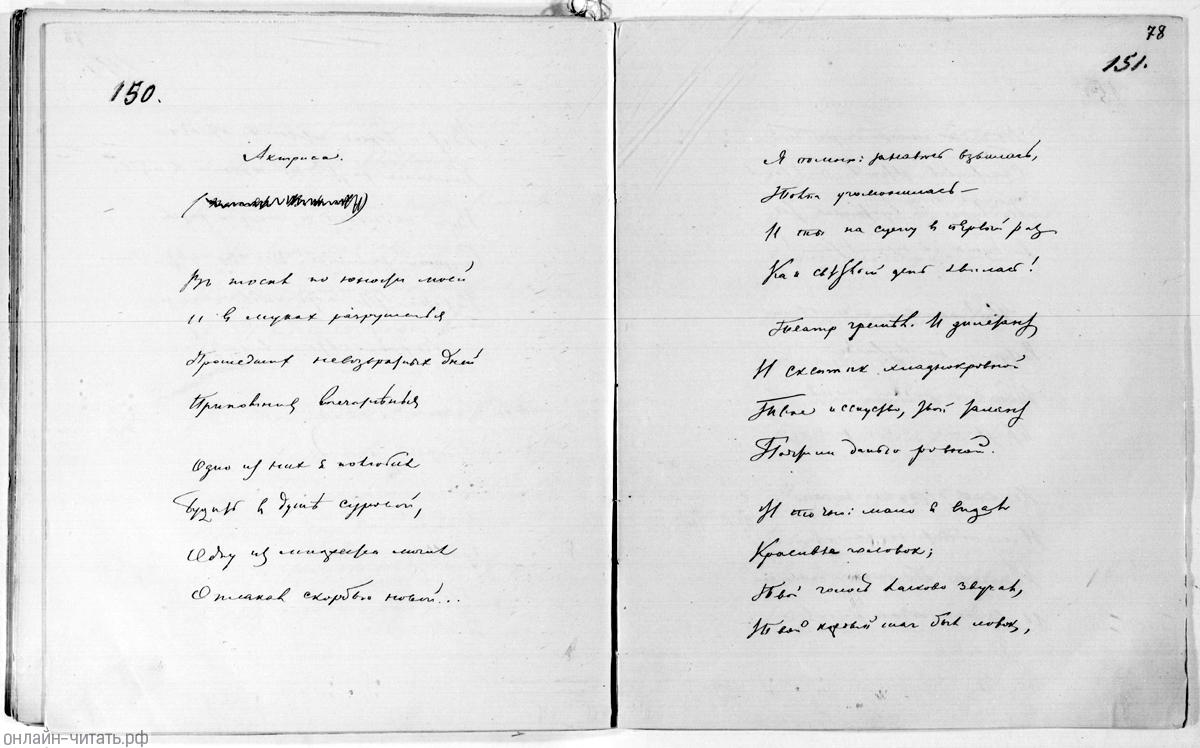 150.
Актриса.
Въ тоскѣ по юности моей
И в мукахъ разрушенья
Прошедших невозвратных дней
Припомнив впечатлѣнья
Одно из них я полюбил
Будить в душѣ суровой,
Одну из множества могил
Оплакав скорбью новой...
78
151.
Я помню: занавесь взвилась,
Толпа угомонилась —
И ты на сцену в первый раз
Как свѣтлый день явилась!
Театр гремѣл. И дилетант
И скептик хладнокровной
Твое искуство, твой талант
Почтили данью ровной.
И точно: мало я видал
Красивѣе головок;
Твой голосъ ласково звучал,
Твой каждый шаг был ловок,
онлайн-читать.рф